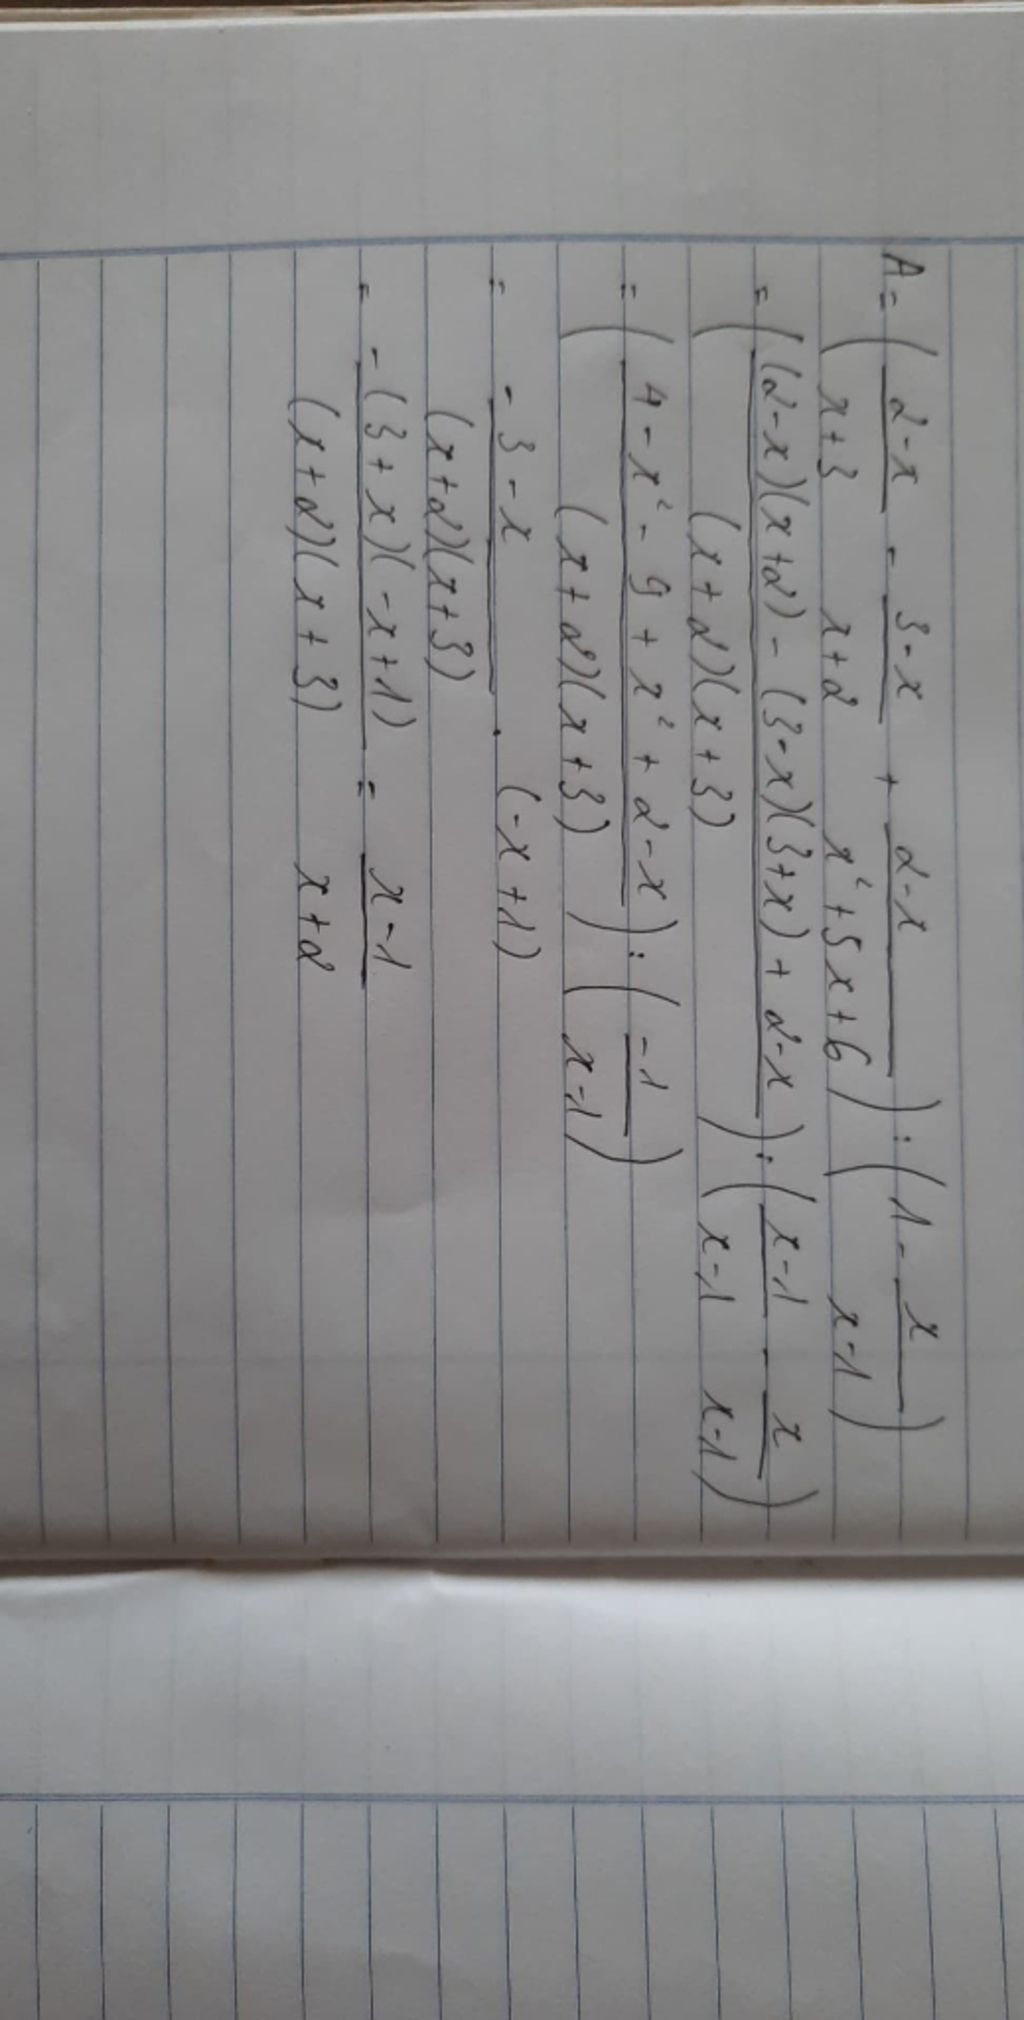 A = ( (2-x)/(x+3) - (3-x)/(x+2) + (2-x)/(x²+5x+6) ) : ( 1 - x/(x-1) )
= ( ((2-x)(x+2) - (3-x)(3+x) + 2-x)/((x+2)(x+3)) ) : ( (x-1)/(x-1) - x/(x-1) )
= ( (4-x²-9+x²+2-x)/((x+2)(x+3)) ) : ( -1/(x-1) )
= (-3-x)/((x+2)(x+3)) . (-x+1)
= (-(3+x)(-x+1))/((x+2)(x+3)) = (x-1)/(x+2)